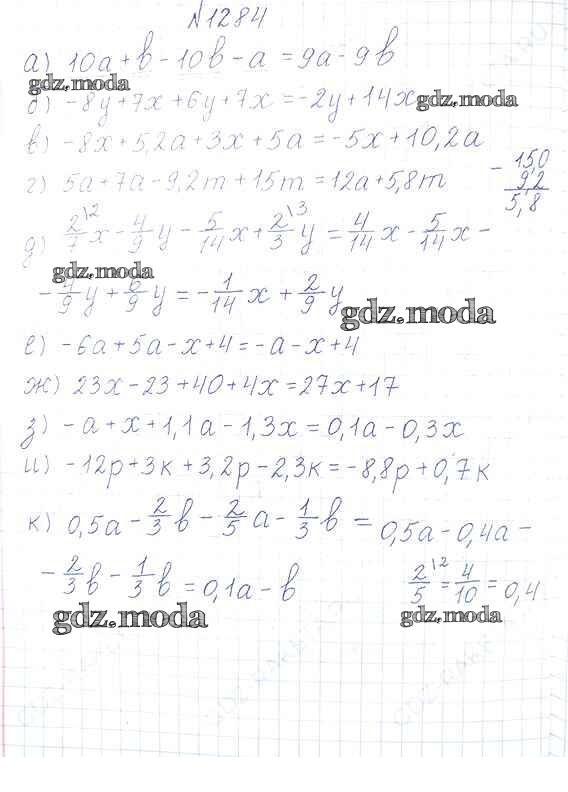 №1284
а) 10a + b - 10b - a = 9a - 9b
gdz.moda
б) -8y + 7x + 6y + 7x = -2y + 14x gdz.moda
в) -8x + 5,2a + 3x + 5a = -5x + 10,2a
г) 5a + 7a - 9,2m + 15m = 12a + 5,8m
- 15,0
9,2
5,8
д) 2/7\2 x - 4/9 y - 5/14 x + 2/3\3 y = 4/14 x - 5/14 x -
gdz.moda
- 4/9 y + 6/9 y = - 1/14 x + 2/9 y
gdz.moda
е) -6a + 5a - x + 4 = -a - x + 4
ж) 23x - 23 + 40 + 4x = 27x + 17
з) -a + x + 1,1a - 1,3x = 0,1a - 0,3x
и) -12p + 3k + 3,2p - 2,3k = -8,8p + 0,7k
к) 0,5a - 2/3 b - 2/5 a - 1/3 b = 0,5a - 0,4a -
- 2/3 b - 1/3 b = 0,1a - b
2/5\2 = 4/10 = 0,4
gdz.moda
gdz.moda